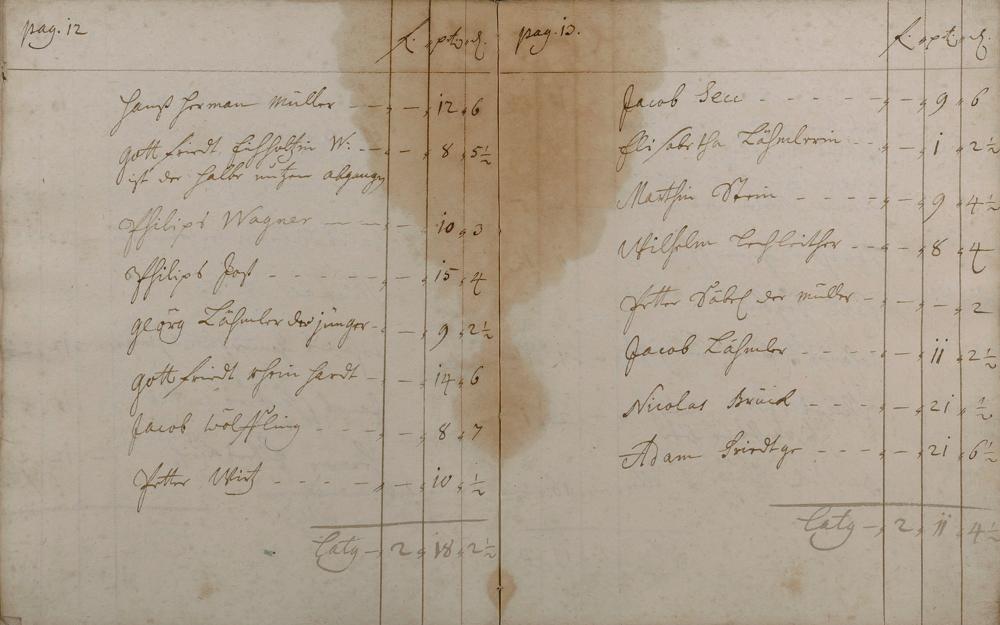 pag. 12
f. apt. d.
Hanß Herman Müller — — „ — „ 12 „ 6
Gottfriedt Eichholtzin W. — „ — „ 8 „ 5½
ist der halbe nutzen abgangen
Philips Wagner — — „ — „ 10 „ 3
Philips Jost - - - - - „ — „ 15 „ 4
Georg Lähmler der jünger - „ — „ 9 „ 2½
Gottfriedt Rheinhardt — „ — „ 14 „ 6
Jacob Wölffling - - - „ — „ 8 „ 7
Petter Wirth - - - - „ — „ 10 „ ½
Latg — 2 „ 18 „ 2½
pag. 13.
f. apt. d.
Jacob Seii - - - - „ — „ 9 „ 6
Elisabetha Lähmlerin - - „ — „ 1 „ 2½
Marthin Stein - - - - „ — „ 9 „ 4½
Wilhelm Lechleither - - „ — „ 8 „ 4
Petter Säbel der müller — „ — „ — „ 2
Jacob Lähmler - - - „ — „ 11 „ 2½
Nicolas Brück - - - „ — „ 21 „ ½
Adam Friedtge - - - „ — „ 21 „ 6½
Latg — „ 2 „ 11 „ 4½